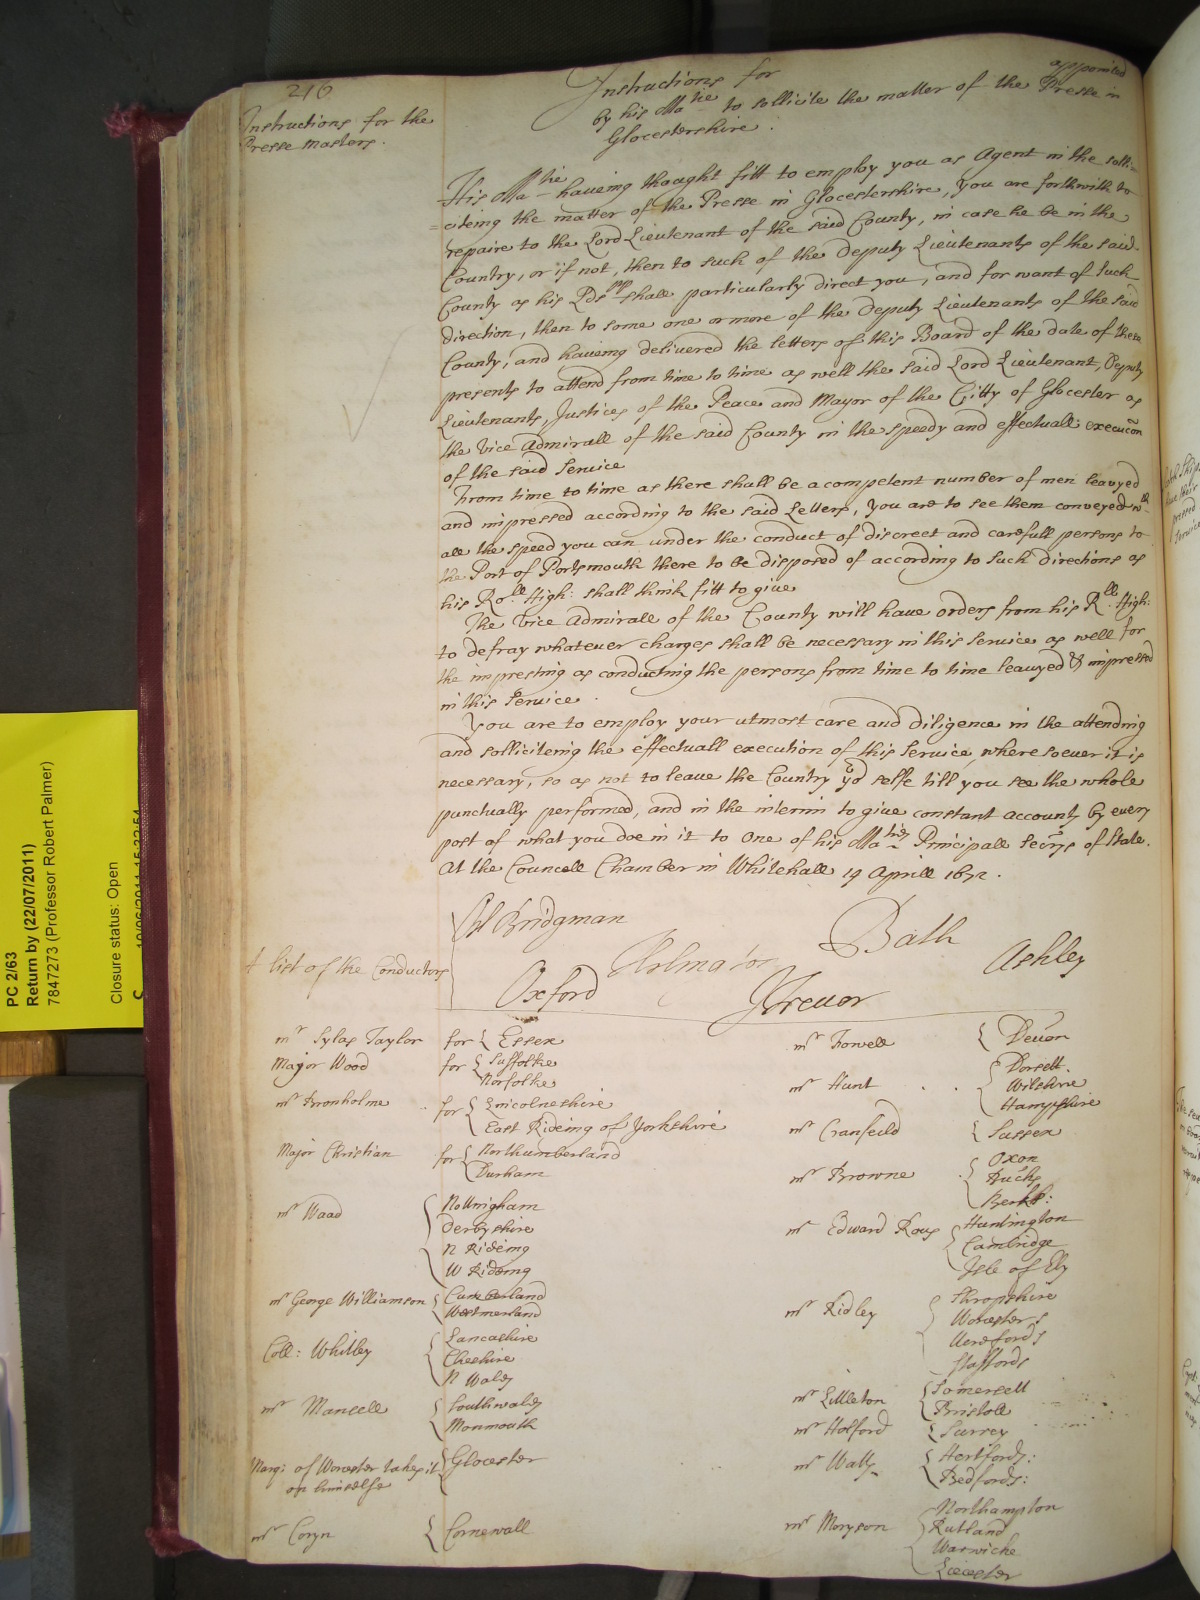 216
Instructions for the
Presse Masters.
Instructions for appointed
by his Ma^tie to sollicite the matter of the Presse in
Glocestershire.
His Ma^tie haueing thought fitt to employ you as Agent in the solli=
=citeing the matter of the Presse in Glocestershire, you are forthwith to
repaire to the Lord Lieutenant of the said County, in case he be in the
Country, or if not, then to such of the Deputy Lieutenants of the said
County as his Lds^pp shall particularly direct you, and for want of such
direction, then to some one or more of the Deputy Lieutenants of the said
County, and haueing deliuered the letters of this Board of the date of these
presents to attend from time to time as well the said Lord Lieutenant, Deputy
Lieutenants, Justices of the Peace and Mayor of the Citty of Glocester as
the Vice Admirall of the said County in the speedy and effectuall execucõn
of the said Service
From time to time as there shall be a competent number of men leauyed
and impressed according to the said Letters, you are to see them conveyed w^th
all the speed you can under the conduct of discreet and carefull persons to
the Port of Portsmouth there to be disposed of according to such directions as
his Ro^ll High: shall think fitt to give
The Vice Admirall of the County will haue orders from his R^ll High:
to defray whatever charges shall be necessary in this Service as well for
the impresting as conducting the persons from time to time leauyed & impressed
in this Service.
You are to employ your utmost care and diligence in the attending
and solliciteing the effectuall execution of this Service, where soeuer it is
necessary, so as not to leaue the Country selfe till you see the whole
punctually performed, and in the interim to giue constant accounts by euery
post of what you doe in it to one of his Ma^ties Principall Secrys of State.
At the Councell Chamber in Whitehall 19 Aprill 1672.
Orl Bridgman
Bath
Arlington
Ashley
Oxford
J Trevor
A list of the Conductors
m^r Sylas Taylor for { Essex
Major Wood for { Suffolke
Norfolke
m^r Bromholme for { Lincolneshire
East Rideing of Yorkshire
Major Christian for { Northumberland
Durham
m^r Waad { Nottingham
Derbyshire
N Rideing
W Rideing
m^r George Williamson { Cumberland
Westmerland
Coll: Whitley { Lancashire
Cheshire
N Wales
m^r Mansell { Southwales
Monmouth
Marq: of Worcester takes it { Glocester
on himselfe
m^r Coryn { Cornewall
m^r Fowell { Devon
m^r Hunt . . { Dorsett.
Wiltshire
Hampshire
m^r Cranfeild { Sussex
m^r Browne { Oxon
Bucks
Berks:
m^r Edward Rous { Huntington
Cambridge
Isle of Ely
m^r Ridley { Shropshire
Worcesters
Herefords
Staffords
m^r Littleton { Somersett
Bristoll
m^r Holford { Surrey
m^r Watts { Hertfords:
Bedfords:
m^r Moryson { Northampton
Rutland
Warwicke
Leicester
PC 2/63
Return by (22/07/2011)
7847273 (Professor Robert Palmer)
Closure status: Open